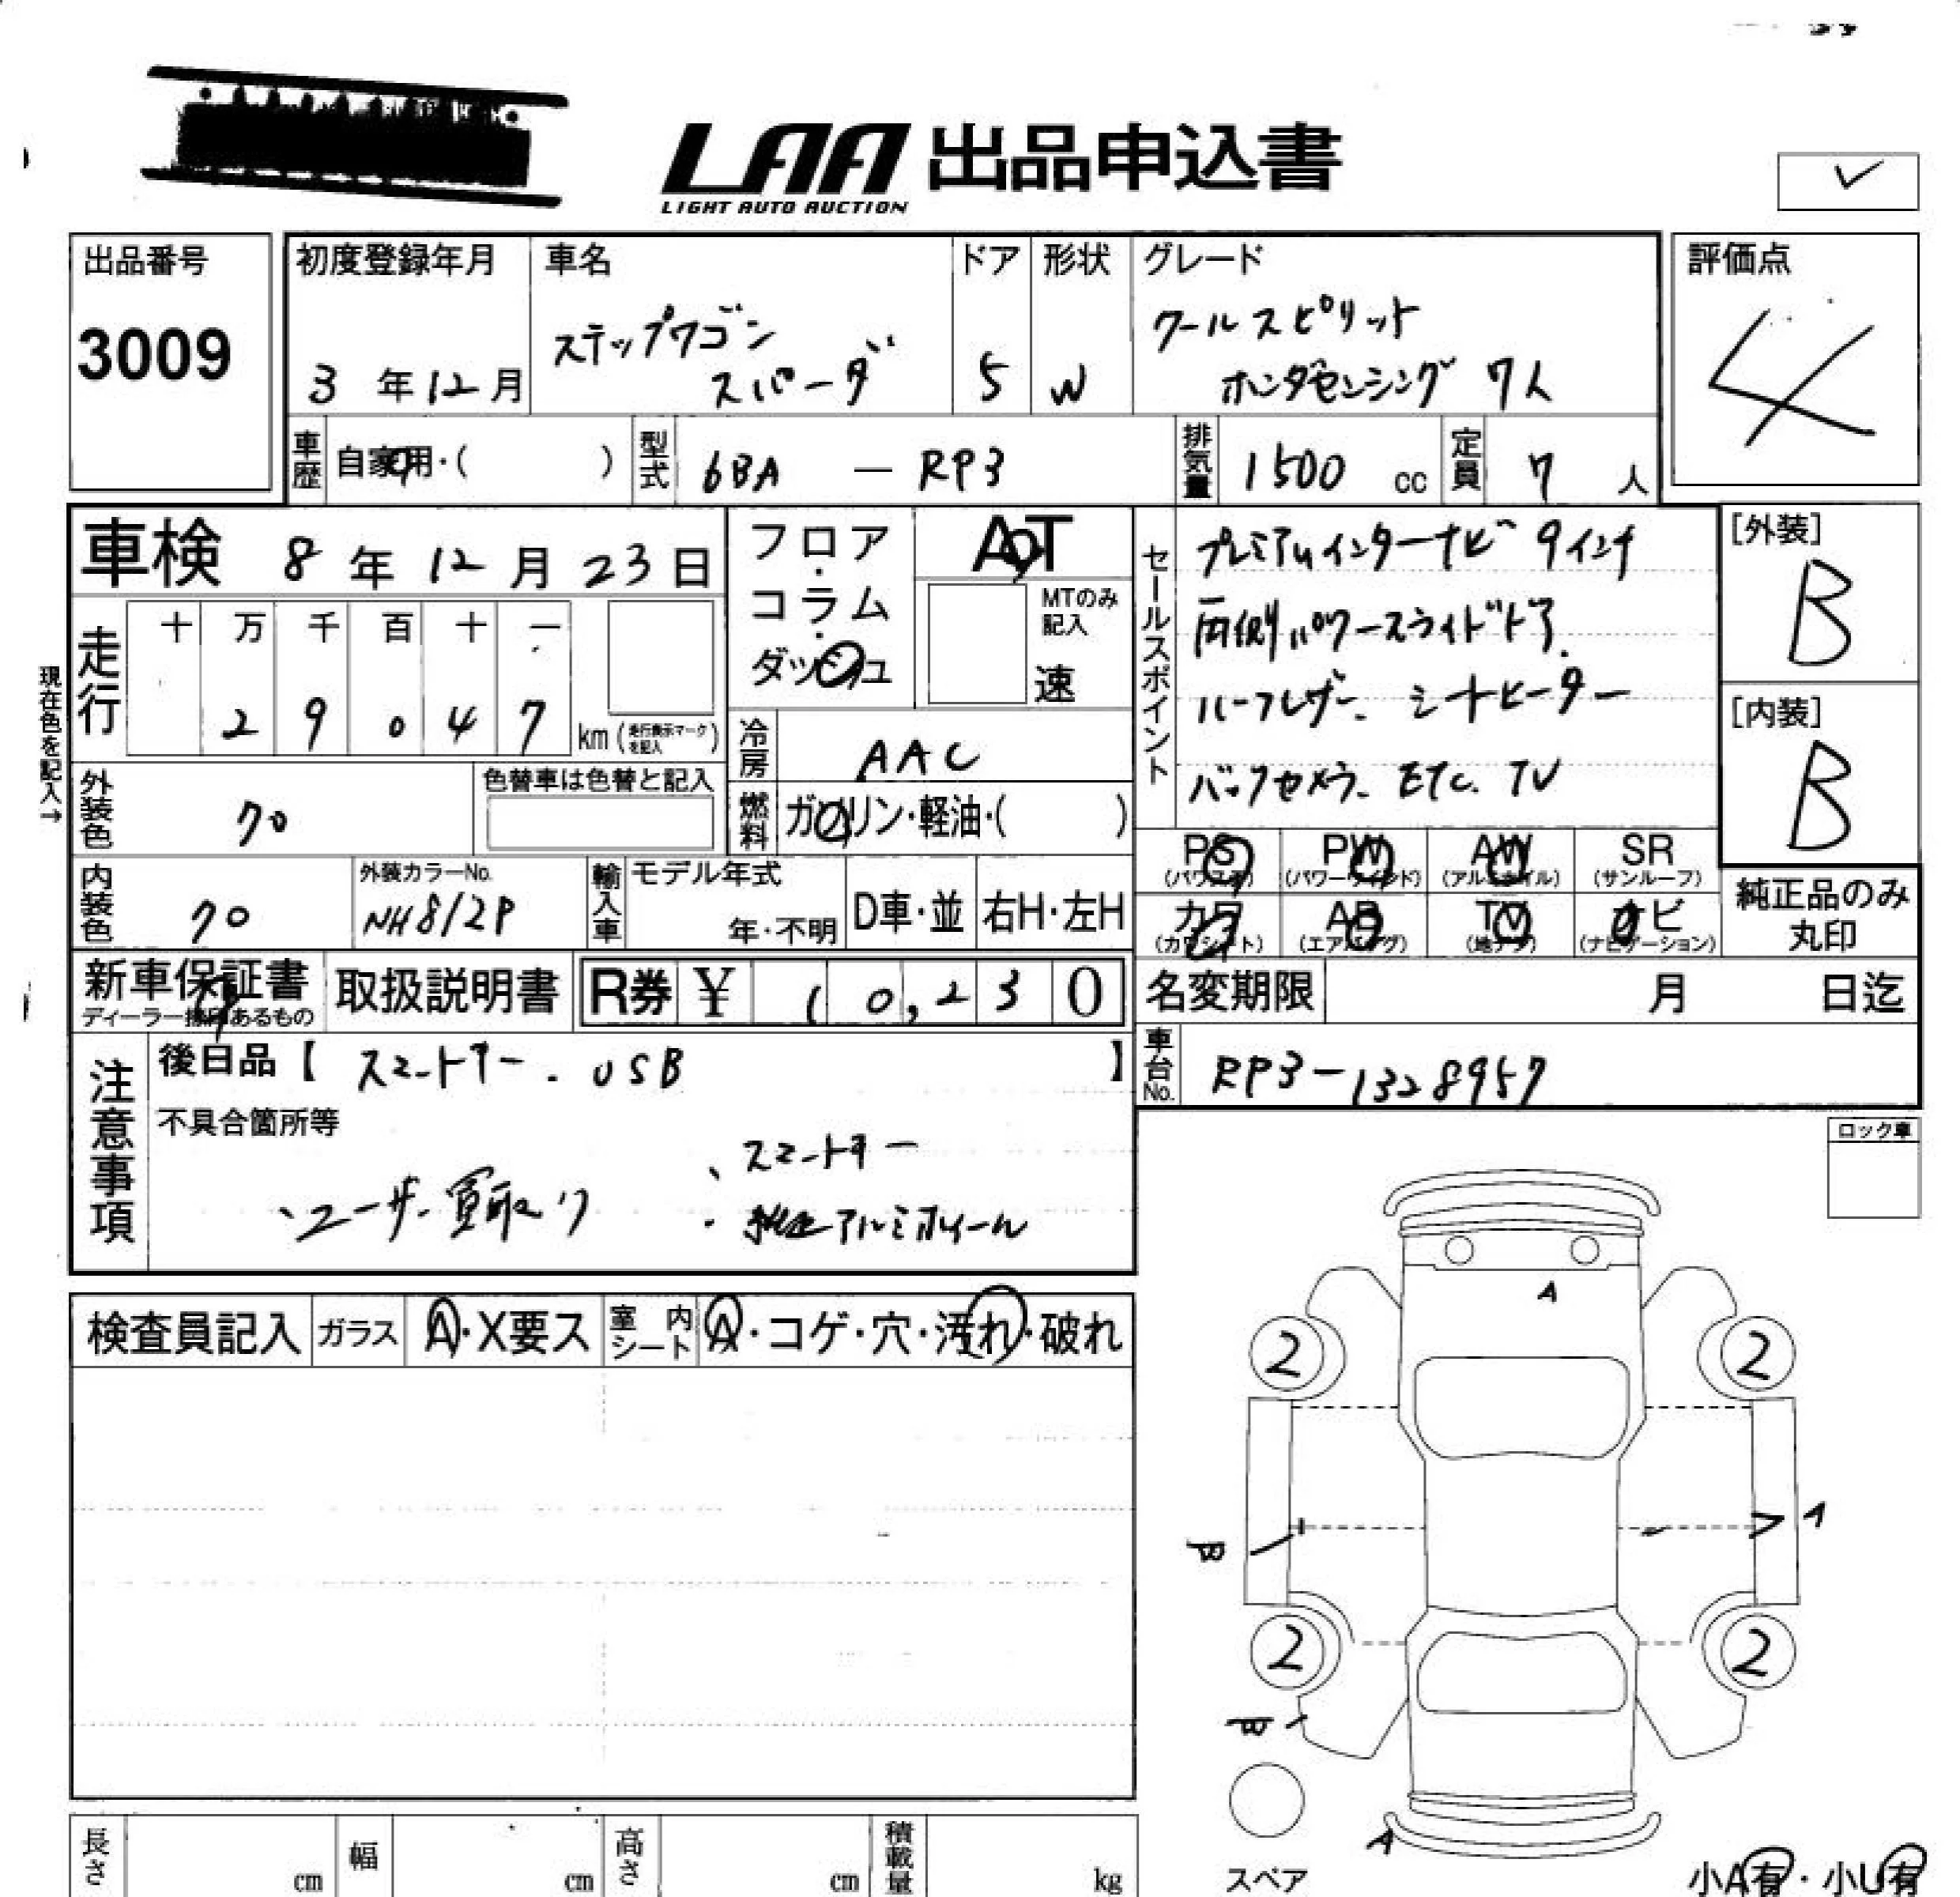 LAA 出品申込書
LIGHT AUTO AUCTION
出品番号
3009
初度登録年月
3 年 12 月
車名
ステップワゴン
スパーダ
ドア
5
形状
W
グレード
クールスピリット
ホンダセンシング 7人
評価点
4
車歴
自家用・( )
型式
6BA — RP3
排気量
1500 cc
定員
7 人
車検 8 年 12 月 23 日
走行
十 万 千 百 十 一
2 9 0 4 7 km (走行表示マークを記入)
現在色を記入→
フロア・コラム・ダッシュ
AT
MTのみ記入
速
冷房
AAC
燃料
ガソリン・軽油・( )
セールスポイント
プレミアムインターナビ 9インチ
両側パワースライドドア.
ハーフレザー. シートヒーター
バックカメラ. ETC. TV
[外装]
B
[内装]
B
外装色
クロ
色替車は色替と記入
内装色
クロ
外装カラーNo.
NH812P
輸入車
モデル年式
年・不明
D車・並
右H・左H
PS (パワステ)
PW (パワーウインド)
AW (アルミホイル)
SR (サンルーフ)
カワ (カワシート)
AB (エアバッグ)
TV (地デジ)
ナビ (ナビゲーション)
純正品のみ
丸印
新車保証書
ディーラー捺印あるもの
取扱説明書
R券 ¥ 10,230
名変期限 月 日迄
車台No.
RP3-1328957
注意事項
後日品【 スマートキー. USB 】
不具合箇所等
、ユーザー買取り
、スマートキー
・純正アルミホイール
ロック車
検査員記入
ガラス
A・X要ス
室内シート
A・コゲ・穴・汚れ・破れ
A
2
2
B
A
2
2
B
A
スペア
小A有・小U有
長さ cm
幅 cm
高さ cm
積載量 kg